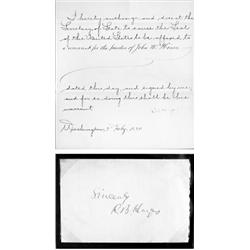 I hereby authorize and direct the
Secretary of State to cause the Seal
of the United States to be affixed to
a warrant for the pardon of John W.
dated this day, and signed by me
and for so doing this shall be his
warrant
Washington, Feby.
Sincerely
R B Hayes